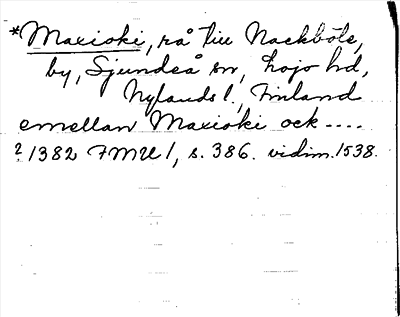 *Maxioki, rå till Nackböle,
by, Sjundeå sn, Lojo hd,
Nylands l., Finland
emellan Maxioki ock ----
? 1382 FMU 1, s. 386. vidim. 1538.